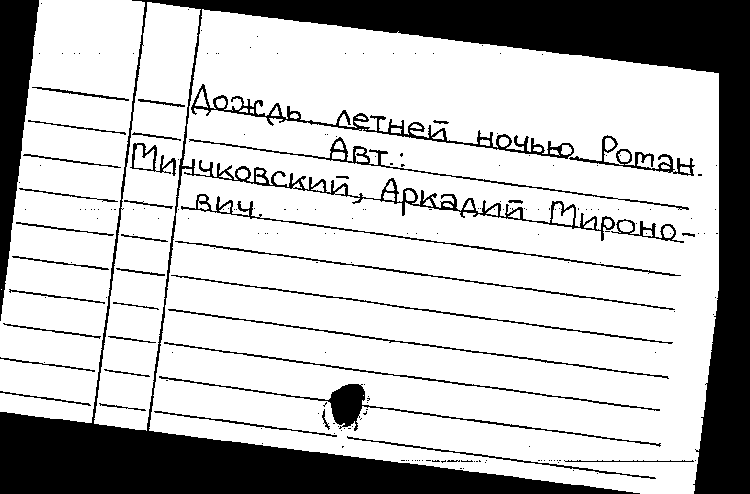 Дождь летней ночью. Роман.
Авт.:
Минчковский, Аркадий Мироно-
вич.